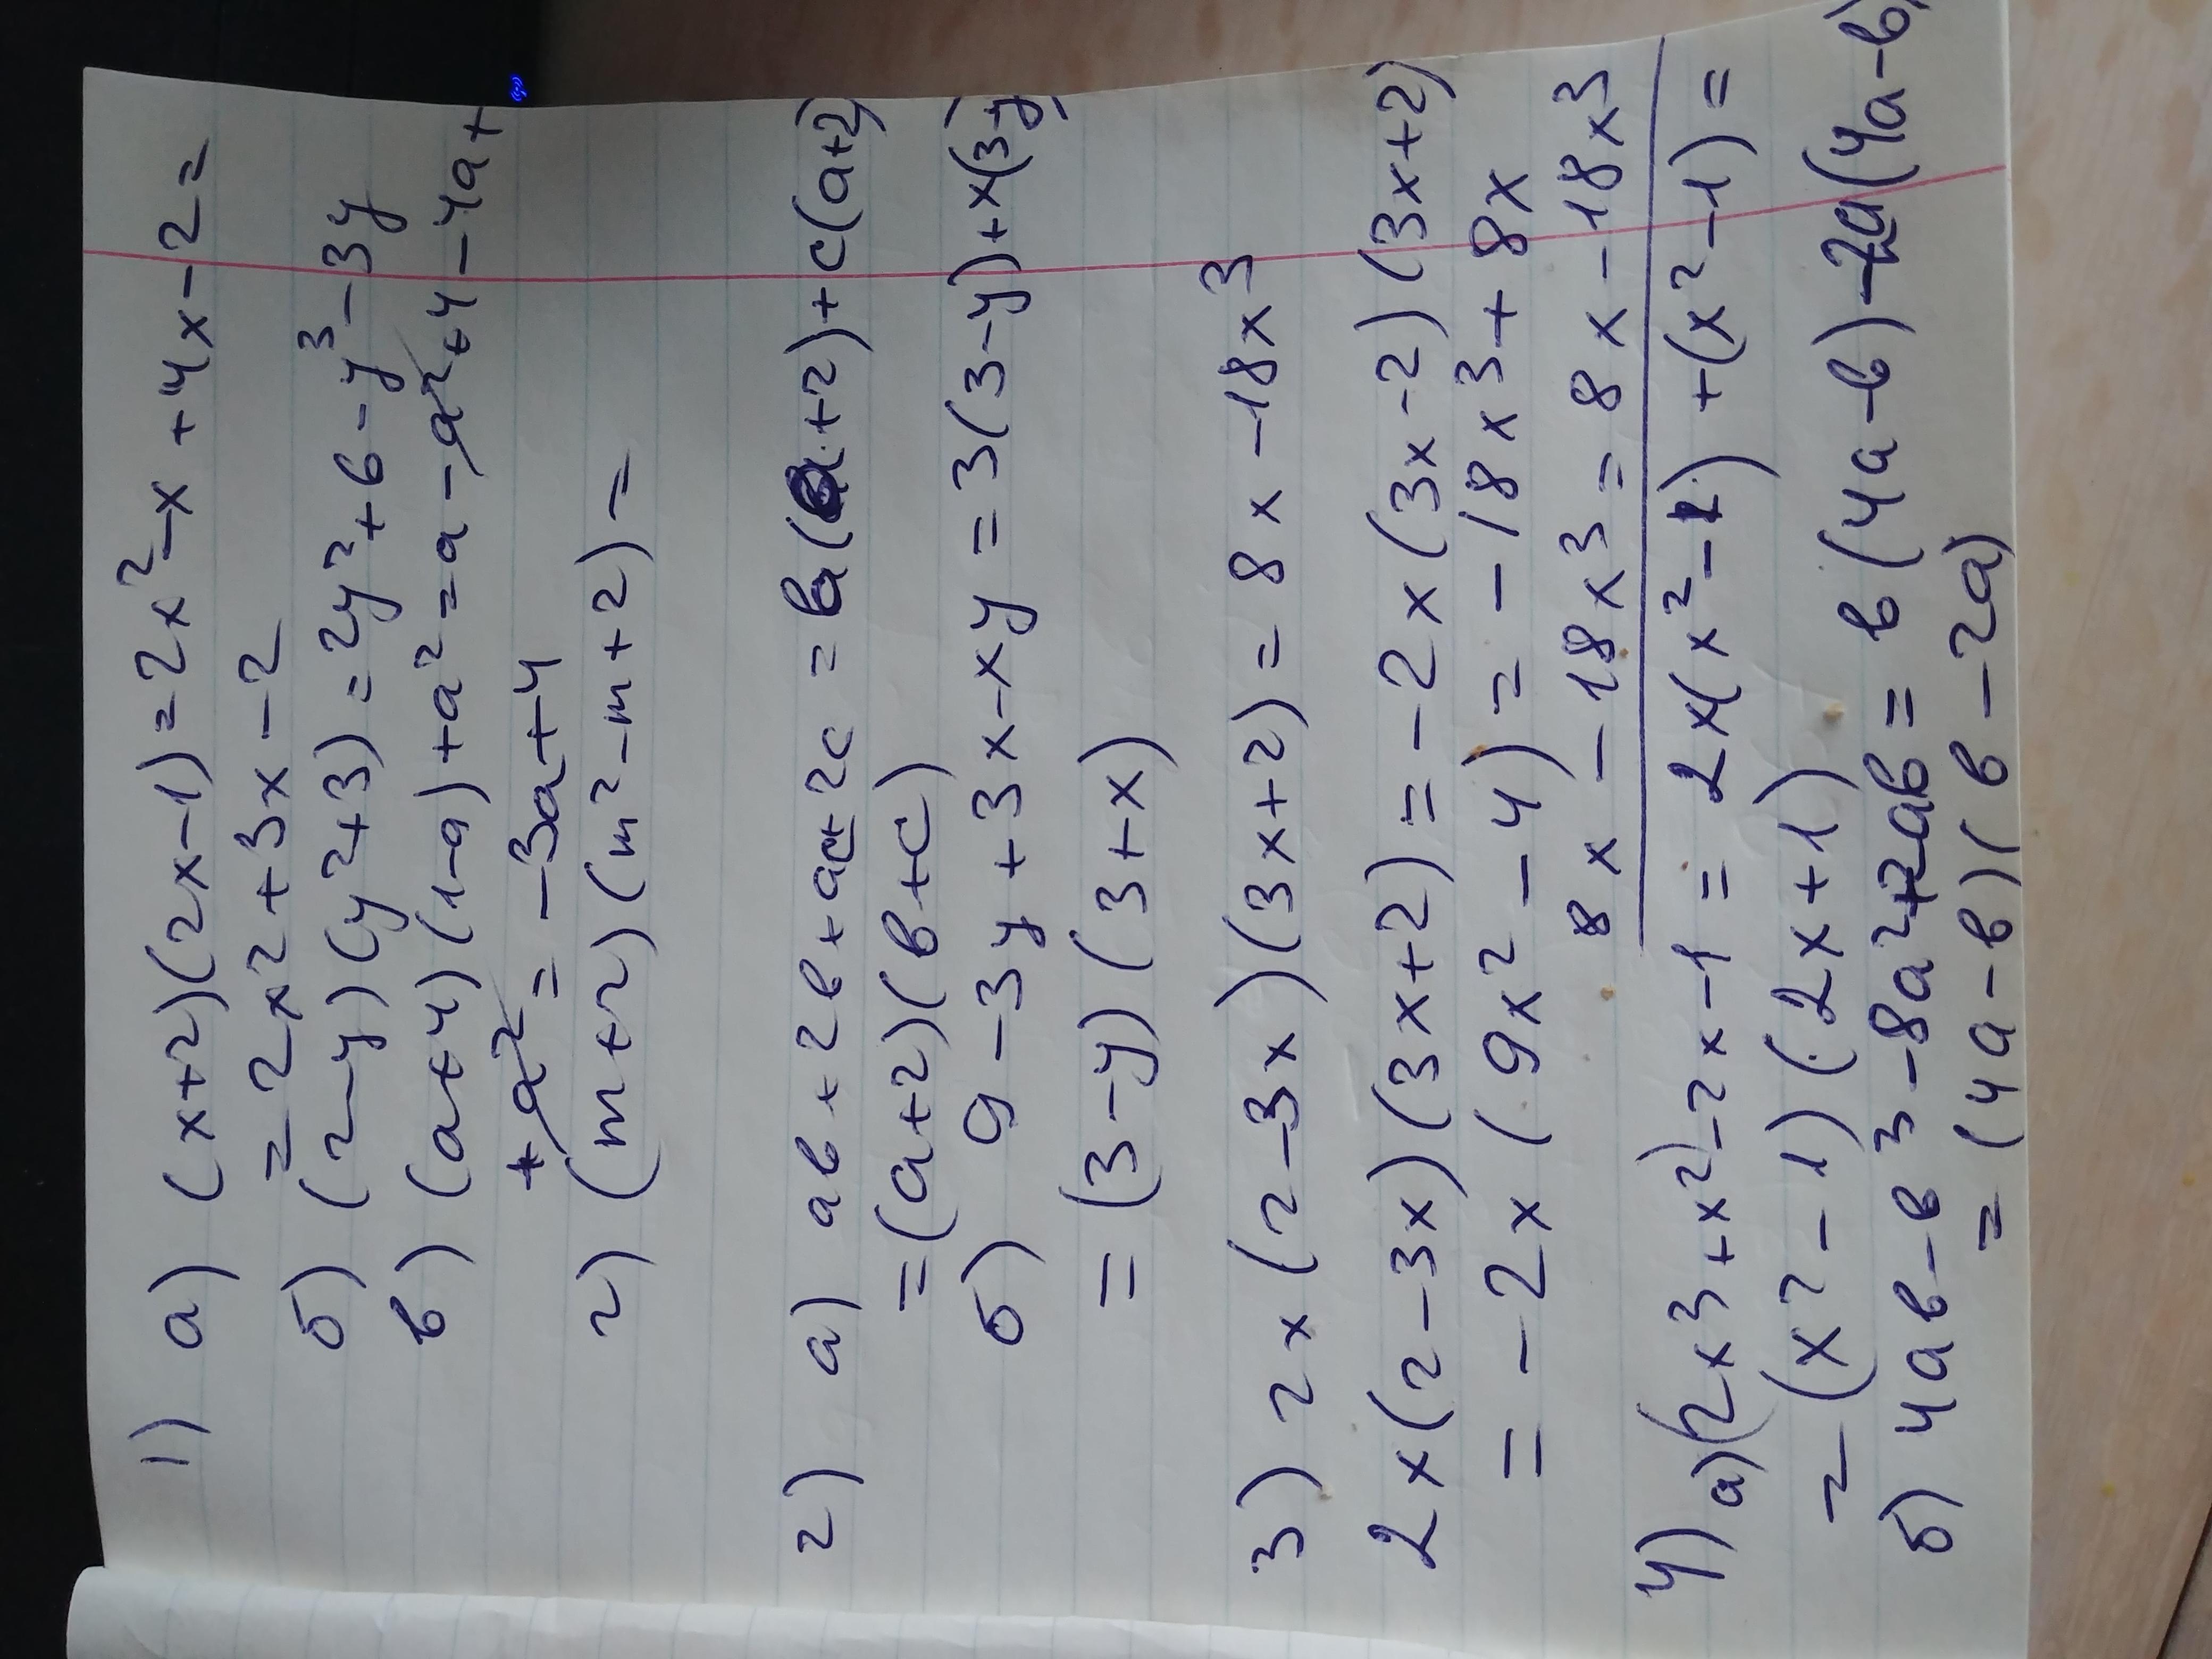 1) а) (x+2)(2x-1)=2x²-x+4x-2=
=2x²+3x-2
б) (2-y)(y²+3)=2y²+6-y³-3y
в) (a+4)(1-a)+a²=a-a²+4-4a+
+a²=-3a+4
г) (m+2)(m²-m+2)=
2) а) ab+2b+ac+2c=b(a+2)+c(a+2)
=(a+2)(b+c)
б) 9-3y+3x-xy=3(3-y)+x(3-y)
=(3-y)(3+x)
3) 2x(2-3x)(3x+2)=8x-18x³
2x(2-3x)(3x+2)=-2x(3x-2)(3x+2)
=-2x(9x²-4)=-18x³+8x
8x-18x³=8x-18x³
4) а) (2x³+x²)-2x-1=2x(x²-1)+(x²-1)=
=(x²-1)(2x+1)
б) 4ab-b³-8a²+2ab=b(4a-b)-2a(4a-b)
=(4a-b)(b-2a)